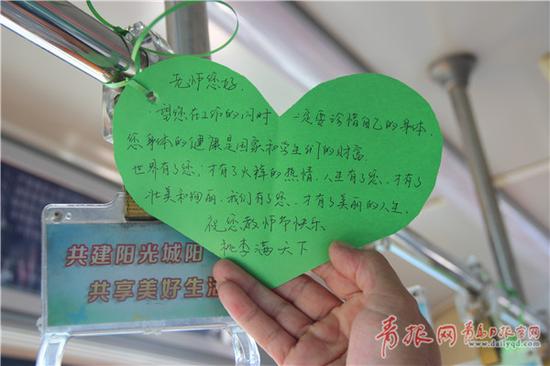 老师您好.
望您在工作的同时 一定要珍惜自己的身体.
您身体的健康是国家和学生们的财富.
世界有了您、才有了火辣的热情、人生有了您、才有了
壮美和绚丽、我们有了您、才有了美丽的人生.
祝您教师节快乐
桃李满天下
共建阳光城阳
共享美好生活
青报网 青岛日报官网
www.dailyqd.com